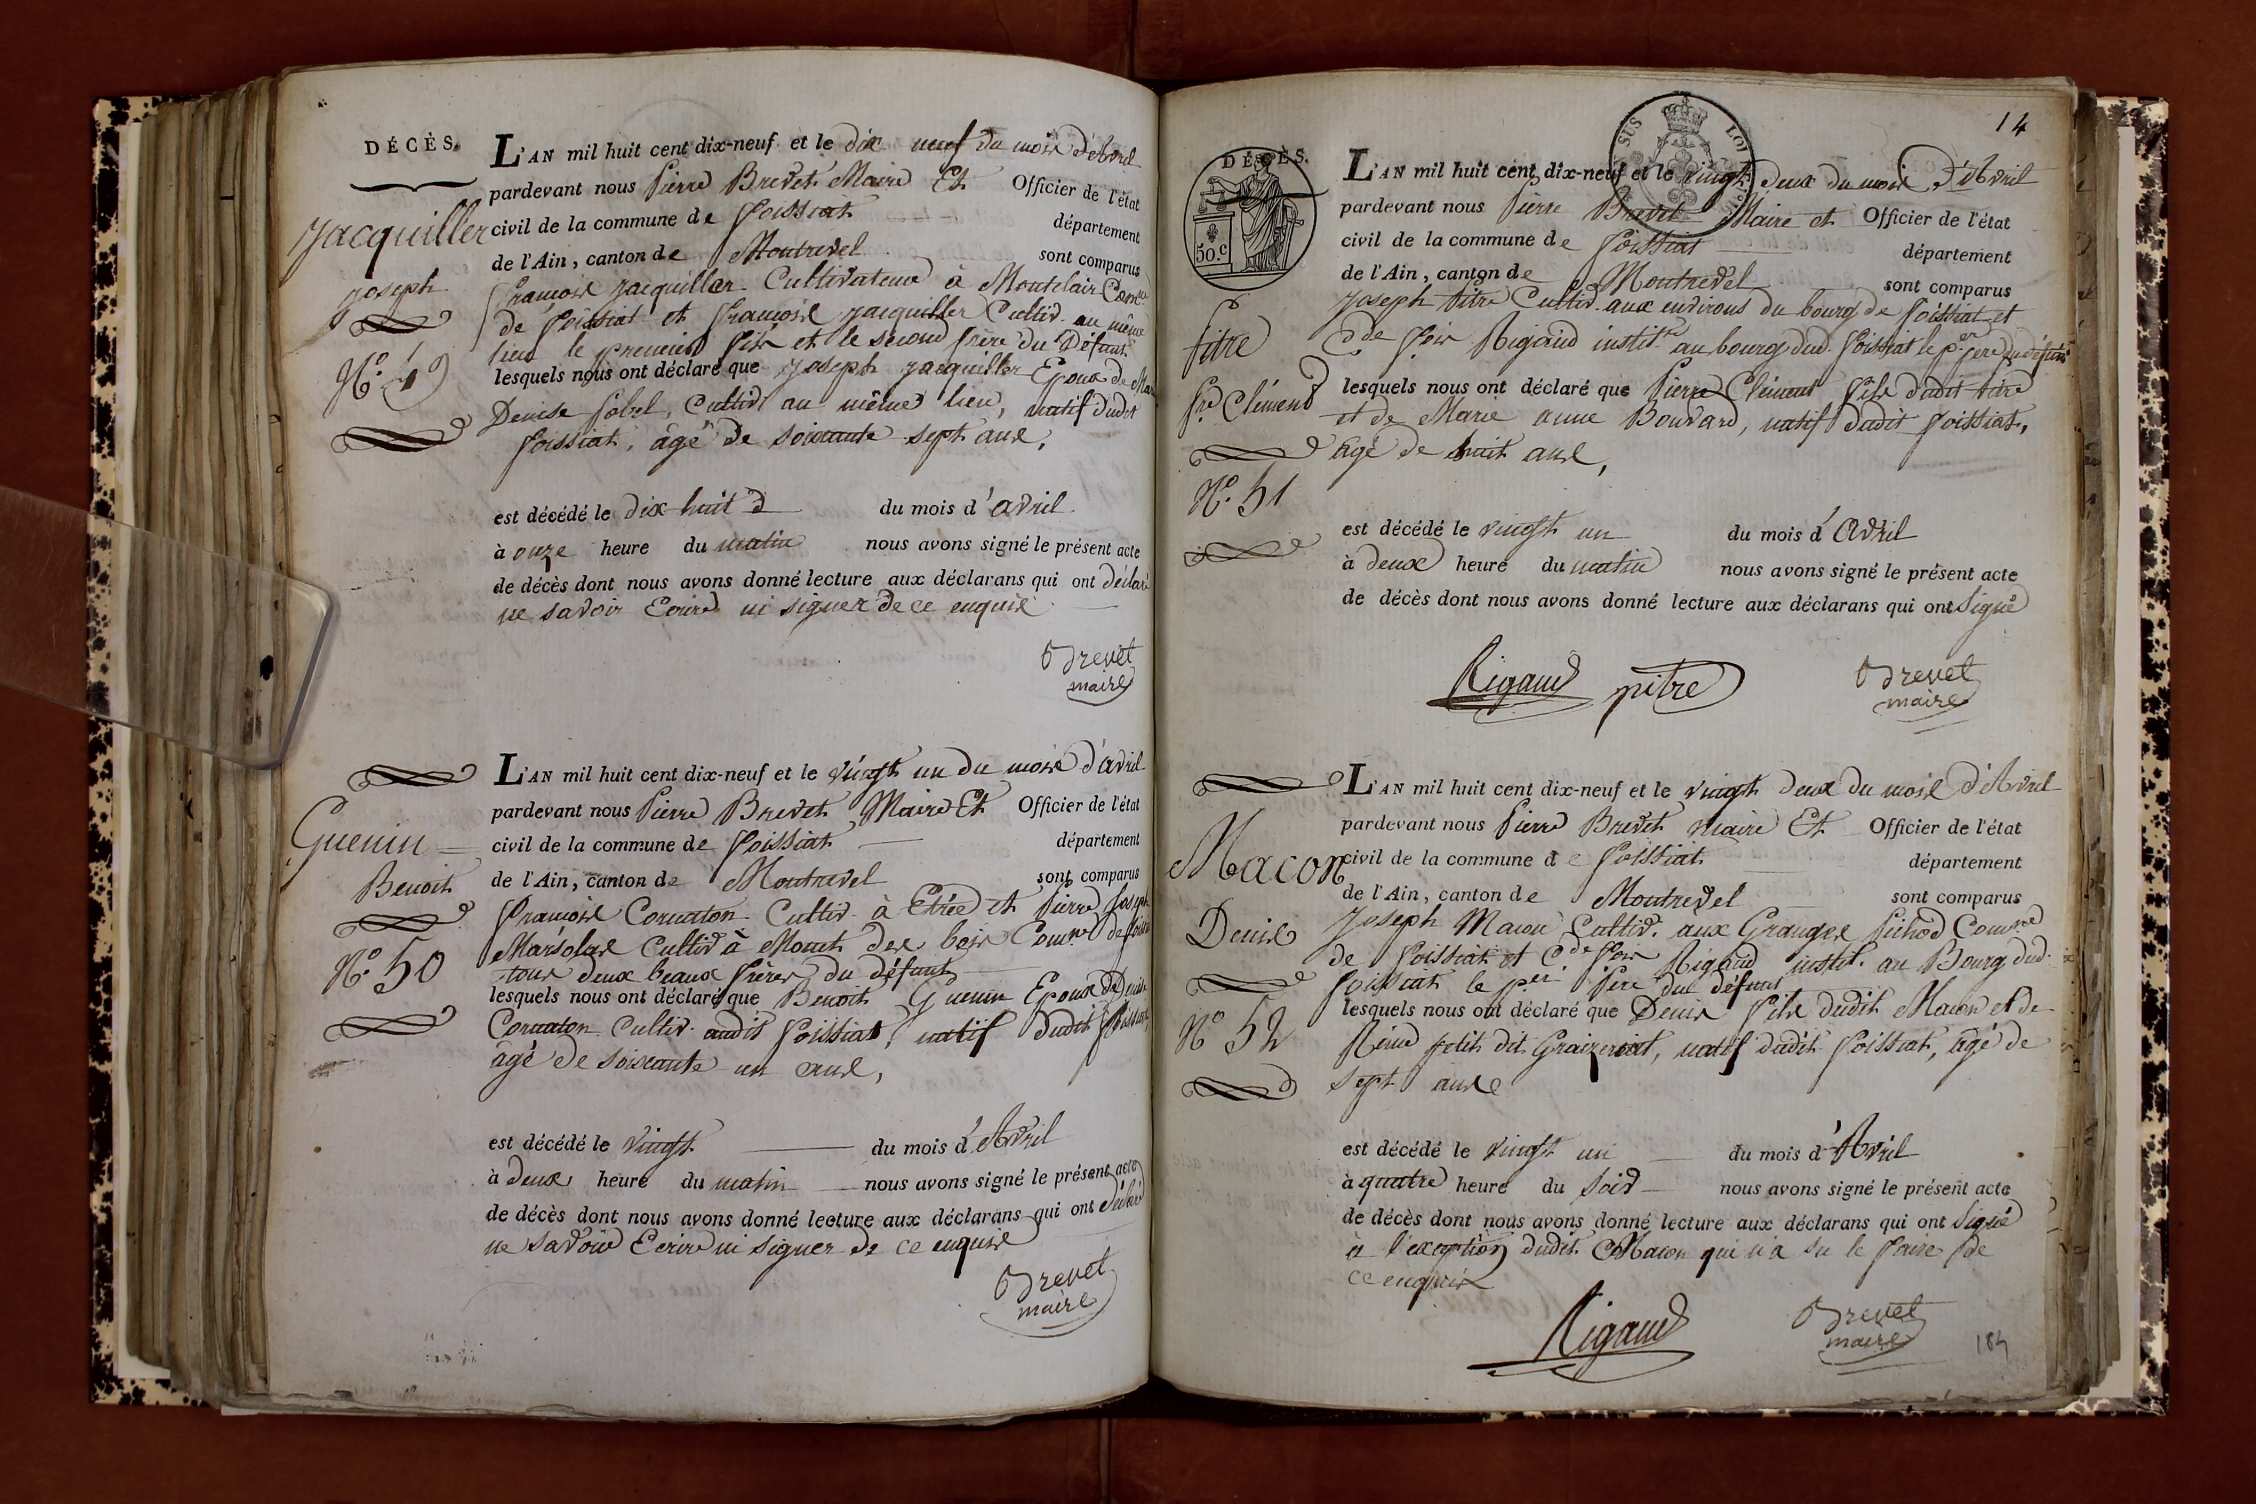 DÉCÈS.
Jacquiller
Joseph
N.° 49
L'AN mil huit cent dix-neuf et le dix neuf du mois d'Avril
pardevant nous Pierre Brevet Maire Et Officier de l'état
civil de la commune de Foissiat département
de l'Ain, canton de Montrevel sont comparus
François Jacquiller Cultivateur à Montclair Comne
de Foissiat et François Jacquiller Cultiv. au même
lieu le premier fils et le second frère du Défunt
lesquels nous ont déclaré que Joseph Jacquiller Epoux de Marie
Denise Sobel, Cultiv au même lieu, natif dudit
Foissiat, âgé de soixante sept ans,
est décédé le dix huit du mois d'avril
à onze heure du matin nous avons signé le présent acte
de décès dont nous avons donné lecture aux déclarans qui ont déclaré
ne savoir Ecrire ni signer de ce enquis
Brevet
maire
Guenin
Benoit
N.° 50
L'AN mil huit cent dix-neuf et le vingt un du mois d'avril
pardevant nous Pierre Brevet Maire Et Officier de l'état
civil de la commune de Foissiat département
de l'Ain, canton de Montrevel sont comparus
François Cornaton Cultiv. à Etrée et Pierre Joseph
Marsolas Cultiv à Mont des bois Comne de Foissiat
tous deux beaux frères du défunt
lesquels nous ont déclaré que Benoit Guenin Epoux de Denise
Cornaton Cultiv. audit Foissiat, natif dudit Foissiat,
âgé de soixante un ans,
est décédé le vingt du mois d'Avril
à deux heure du matin nous avons signé le présent acte
de décès dont nous avons donné lecture aux déclarans qui ont déclaré
ne savoir Ecrire ni signer de ce enquis
Brevet
maire
14
DÉCÈS.
50.c
SUS LOI
Pitre
Pre Clément
N.° 51
L'AN mil huit cent dix-neuf et le vingt deux du mois d'Avril
pardevant nous Pierre Brevet Maire et Officier de l'état
civil de la commune de Foissiat département
de l'Ain, canton de Montrevel sont comparus
Joseph Pitre Cultiv. aux environs du bourg de Foissiat et
Cde Fois Rigaud instit. au bourg dud. Foissiat le per père du défunt
lesquels nous ont déclaré que Pierre Clément fils dudit Pitre
et de Marie anne Bouvard, natif dudit Foissiat,
âgé de huit ans,
est décédé le vingt un du mois d'Avril
à deux heure du matin nous avons signé le présent acte
de décès dont nous avons donné lecture aux déclarans qui ont signé
Rigaud pitre Brevet
maire
Macon
Denis
N.° 52
L'AN mil huit cent dix-neuf et le vingt deux du mois d'Avril
pardevant nous Pierre Brevet maire Et Officier de l'état
civil de la commune de Foissiat département
de l'Ain, canton de Montrevel sont comparus
Joseph Macon Cultiv. aux Granges Pichod Comne
de Foissiat et Cde Fois Rigaud instit. au Bourg dud.
Foissiat le per père du défunt
lesquels nous ont déclaré que Denis fils dudit Macon et de
Reine petit dit Graizerat, natif dudit Foissiat, âgé de
sept ans
est décédé le vingt un du mois d'Avril
à quatre heure du soir nous avons signé le présent acte
de décès dont nous avons donné lecture aux déclarans qui ont signé
à l'exception dudit Macon qui n'a su le faire de
ce enquis
Rigaud Brevet
maire
184